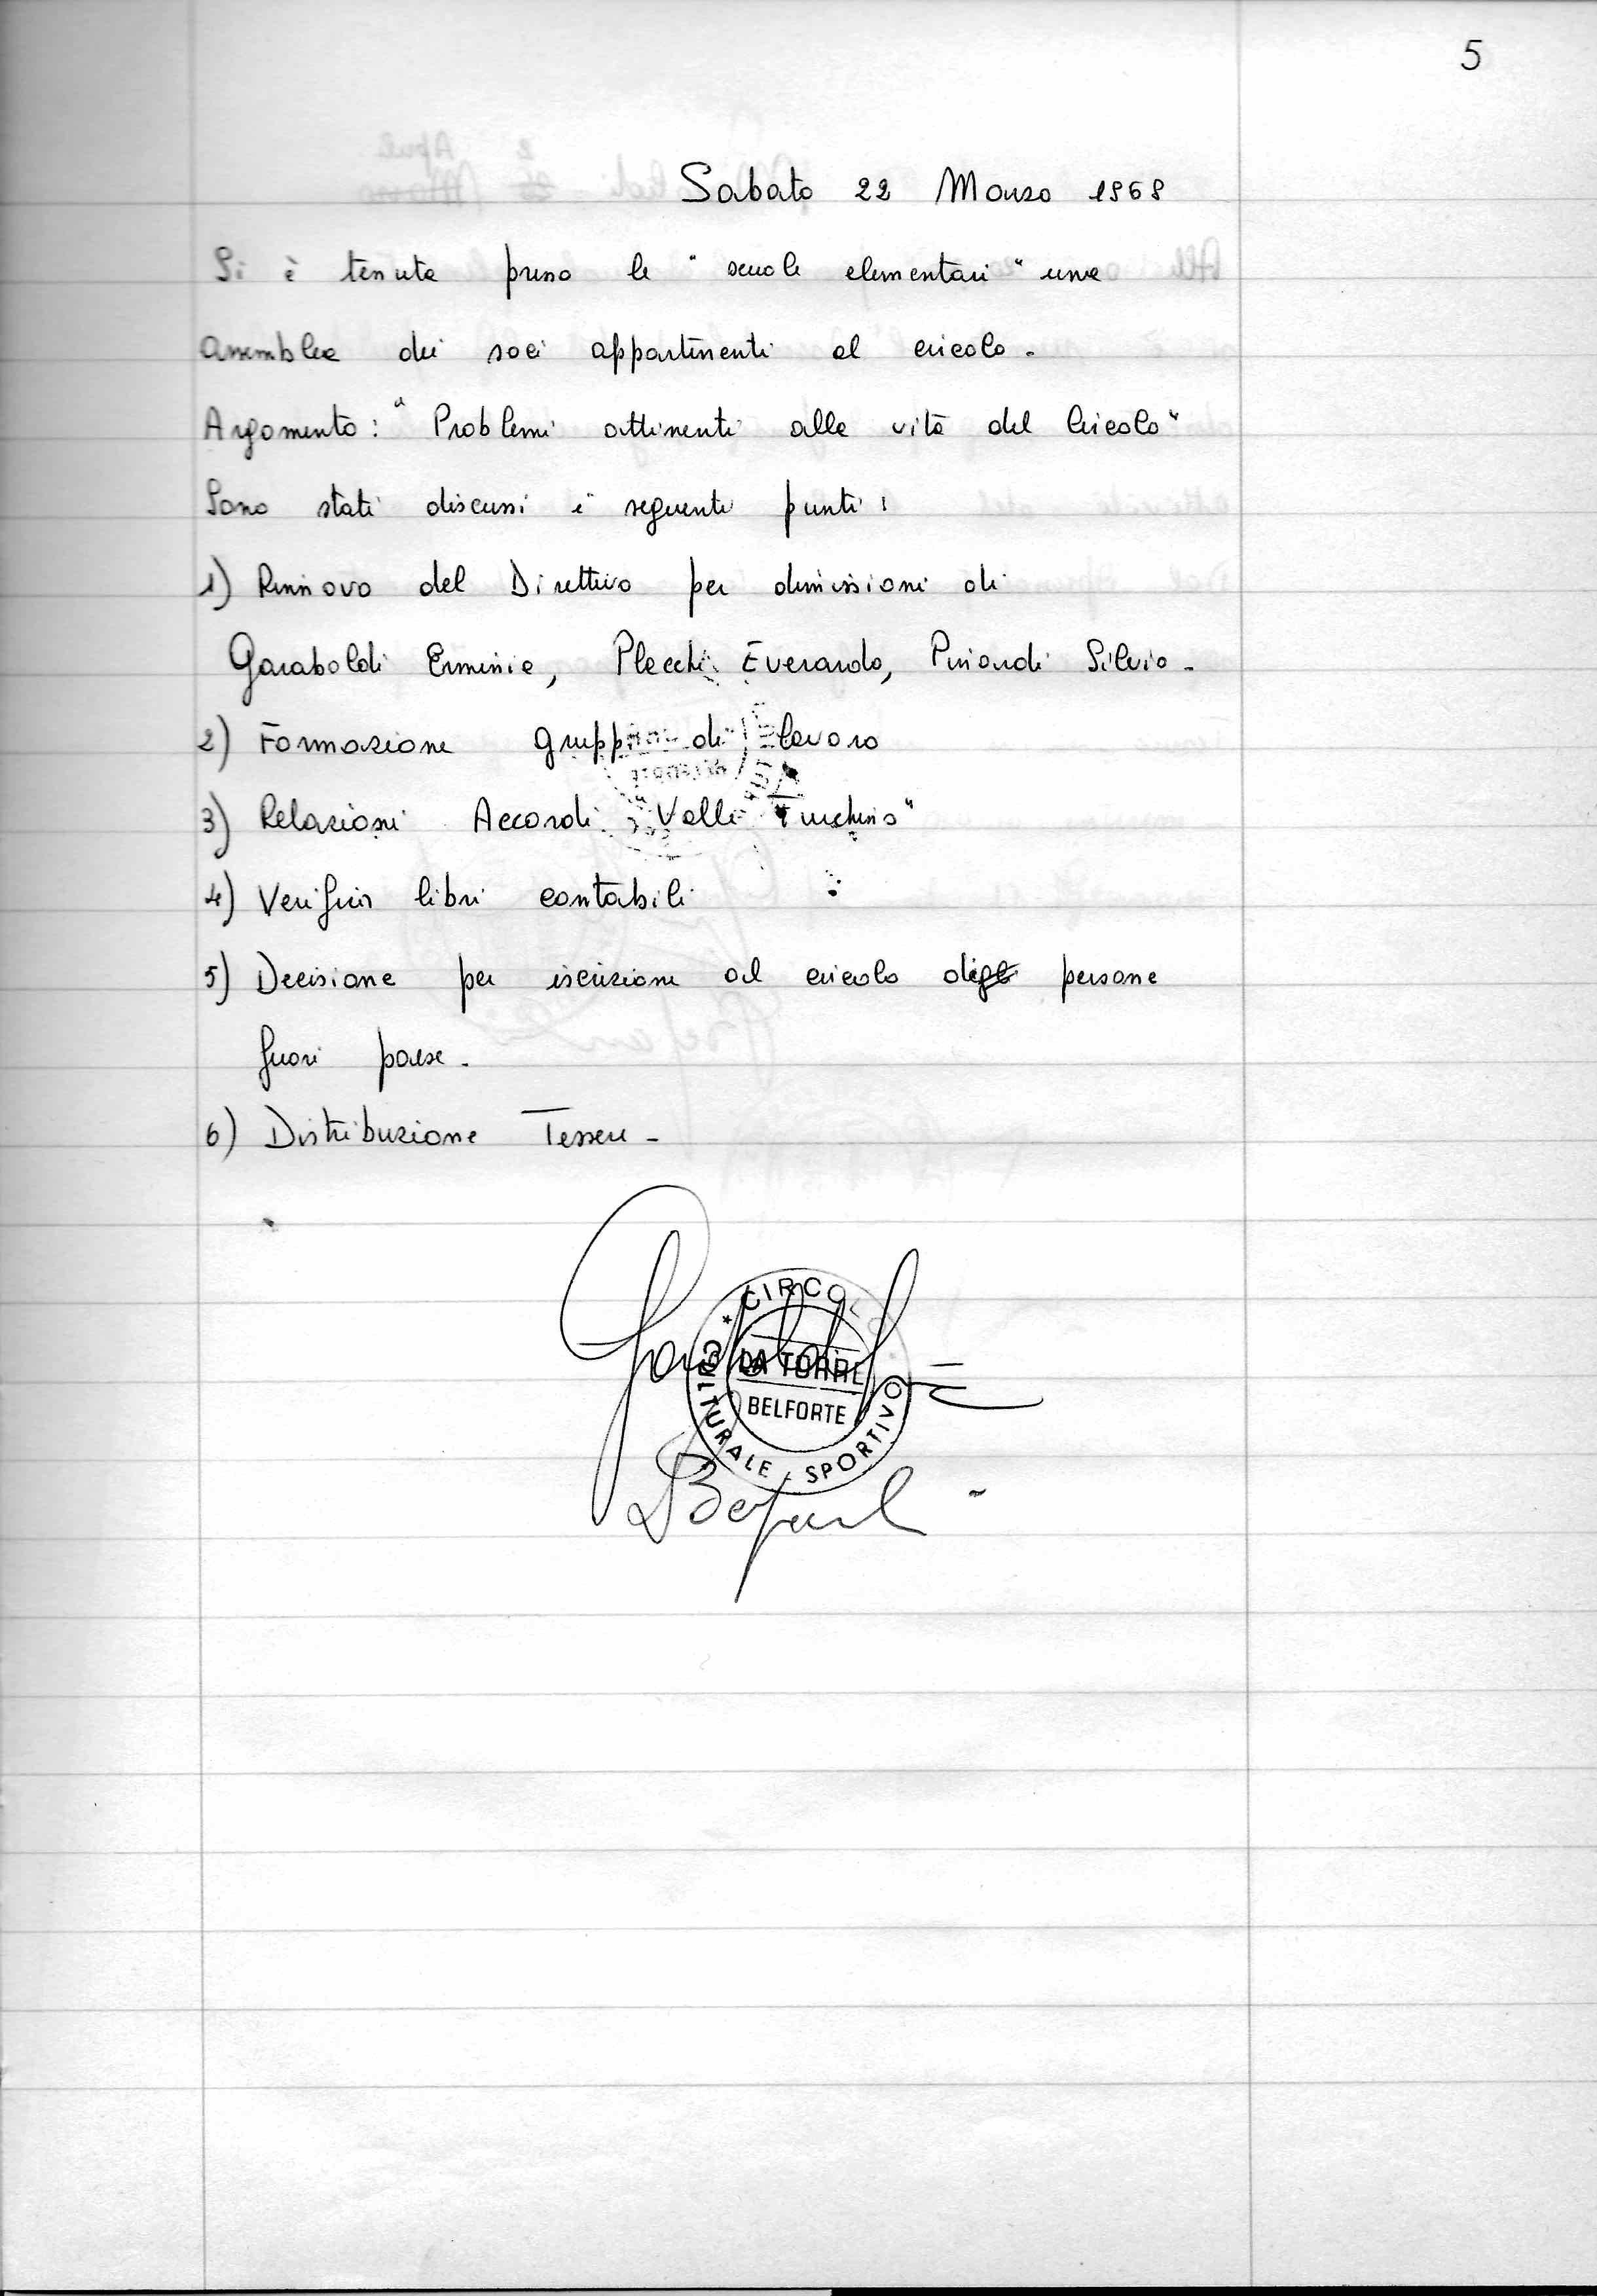 5
Sabato 22 Marzo 1969
Si è tenuta presso le "scuole elementari" una
assemblea dei soci appartenenti al circolo.
Argomento: "Problemi attinenti alla vita del Circolo"
Sono stati discussi i seguenti punti:
1) Rinnovo del Direttivo per dimissioni di
Garaboldi Erminia, Plecchi Everardo, Silvio.
2) Formazione gruppi di lavoro
3) Relazioni Accordi "Valle
4) Verifica libri contabili
5) Decisione per iscrizione al circolo di persone
fuori paese.
6) Distribuzione Tessere.
* CIRCOLO *
CULTURALE - SPORTIVO
LA TORRE
BELFORTE